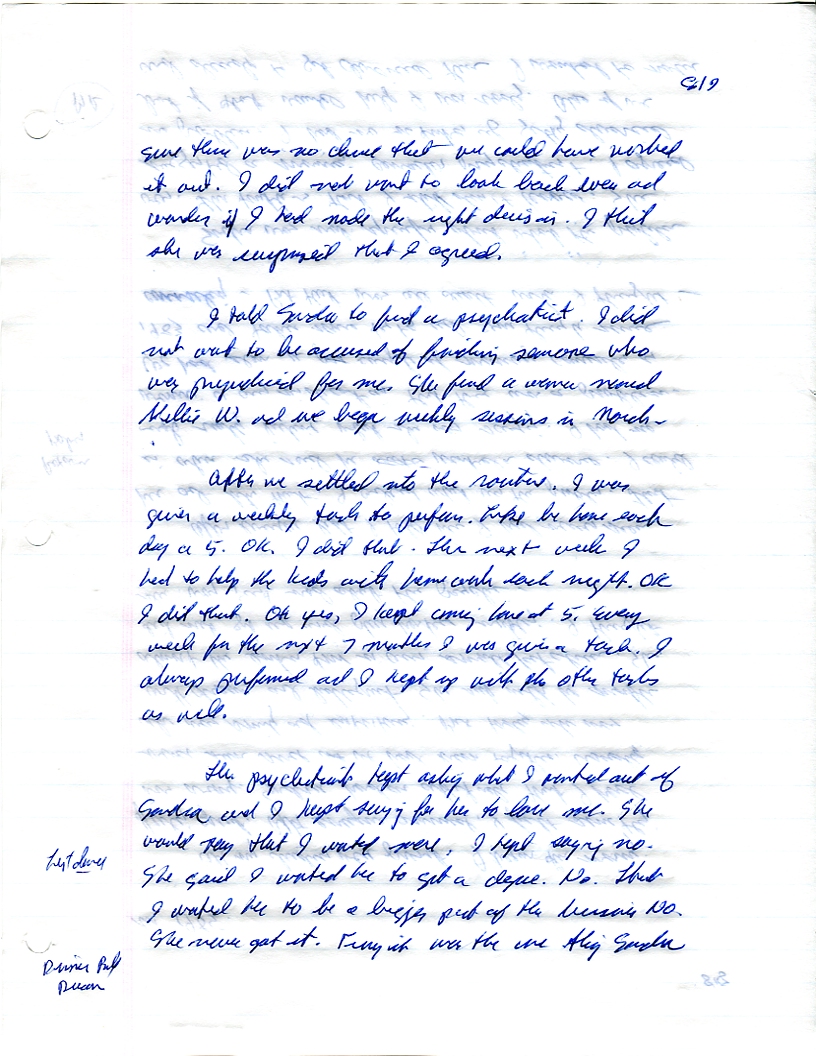 sure there was no chance that we could have worked
it out. I did not want to look back even ad
wonder if I had made the right decision. I think
she was surprised that I agreed.
I told Sandra to find a psychatrist. I did
not want to be accused of finding someone who
was prejudiced for me. She find a woman named
Nellie W. ad we began weekly sessions in March.
After we settled into the routine. I was
given a weekly task to perform. Like be home each
day a 5. OK. I did that. The next week I
had to help the kids with homework each night. OK
I did that. Oh yes, I kept coming home at 5. Every
week for the next 7 months I was given a task. I
always performed ad I kept up with the other tasks
as well.
The psychatrist kept asking what I wanted out of
Sandra and I kept saying for her to love me. She
would say that I wanted more. I kept saying no.
She said I wanted her to get a degree. No. That
I wanted her to be a bigger part of the business No.
She never got it. Funny it was the one thing Sandra
Dinner